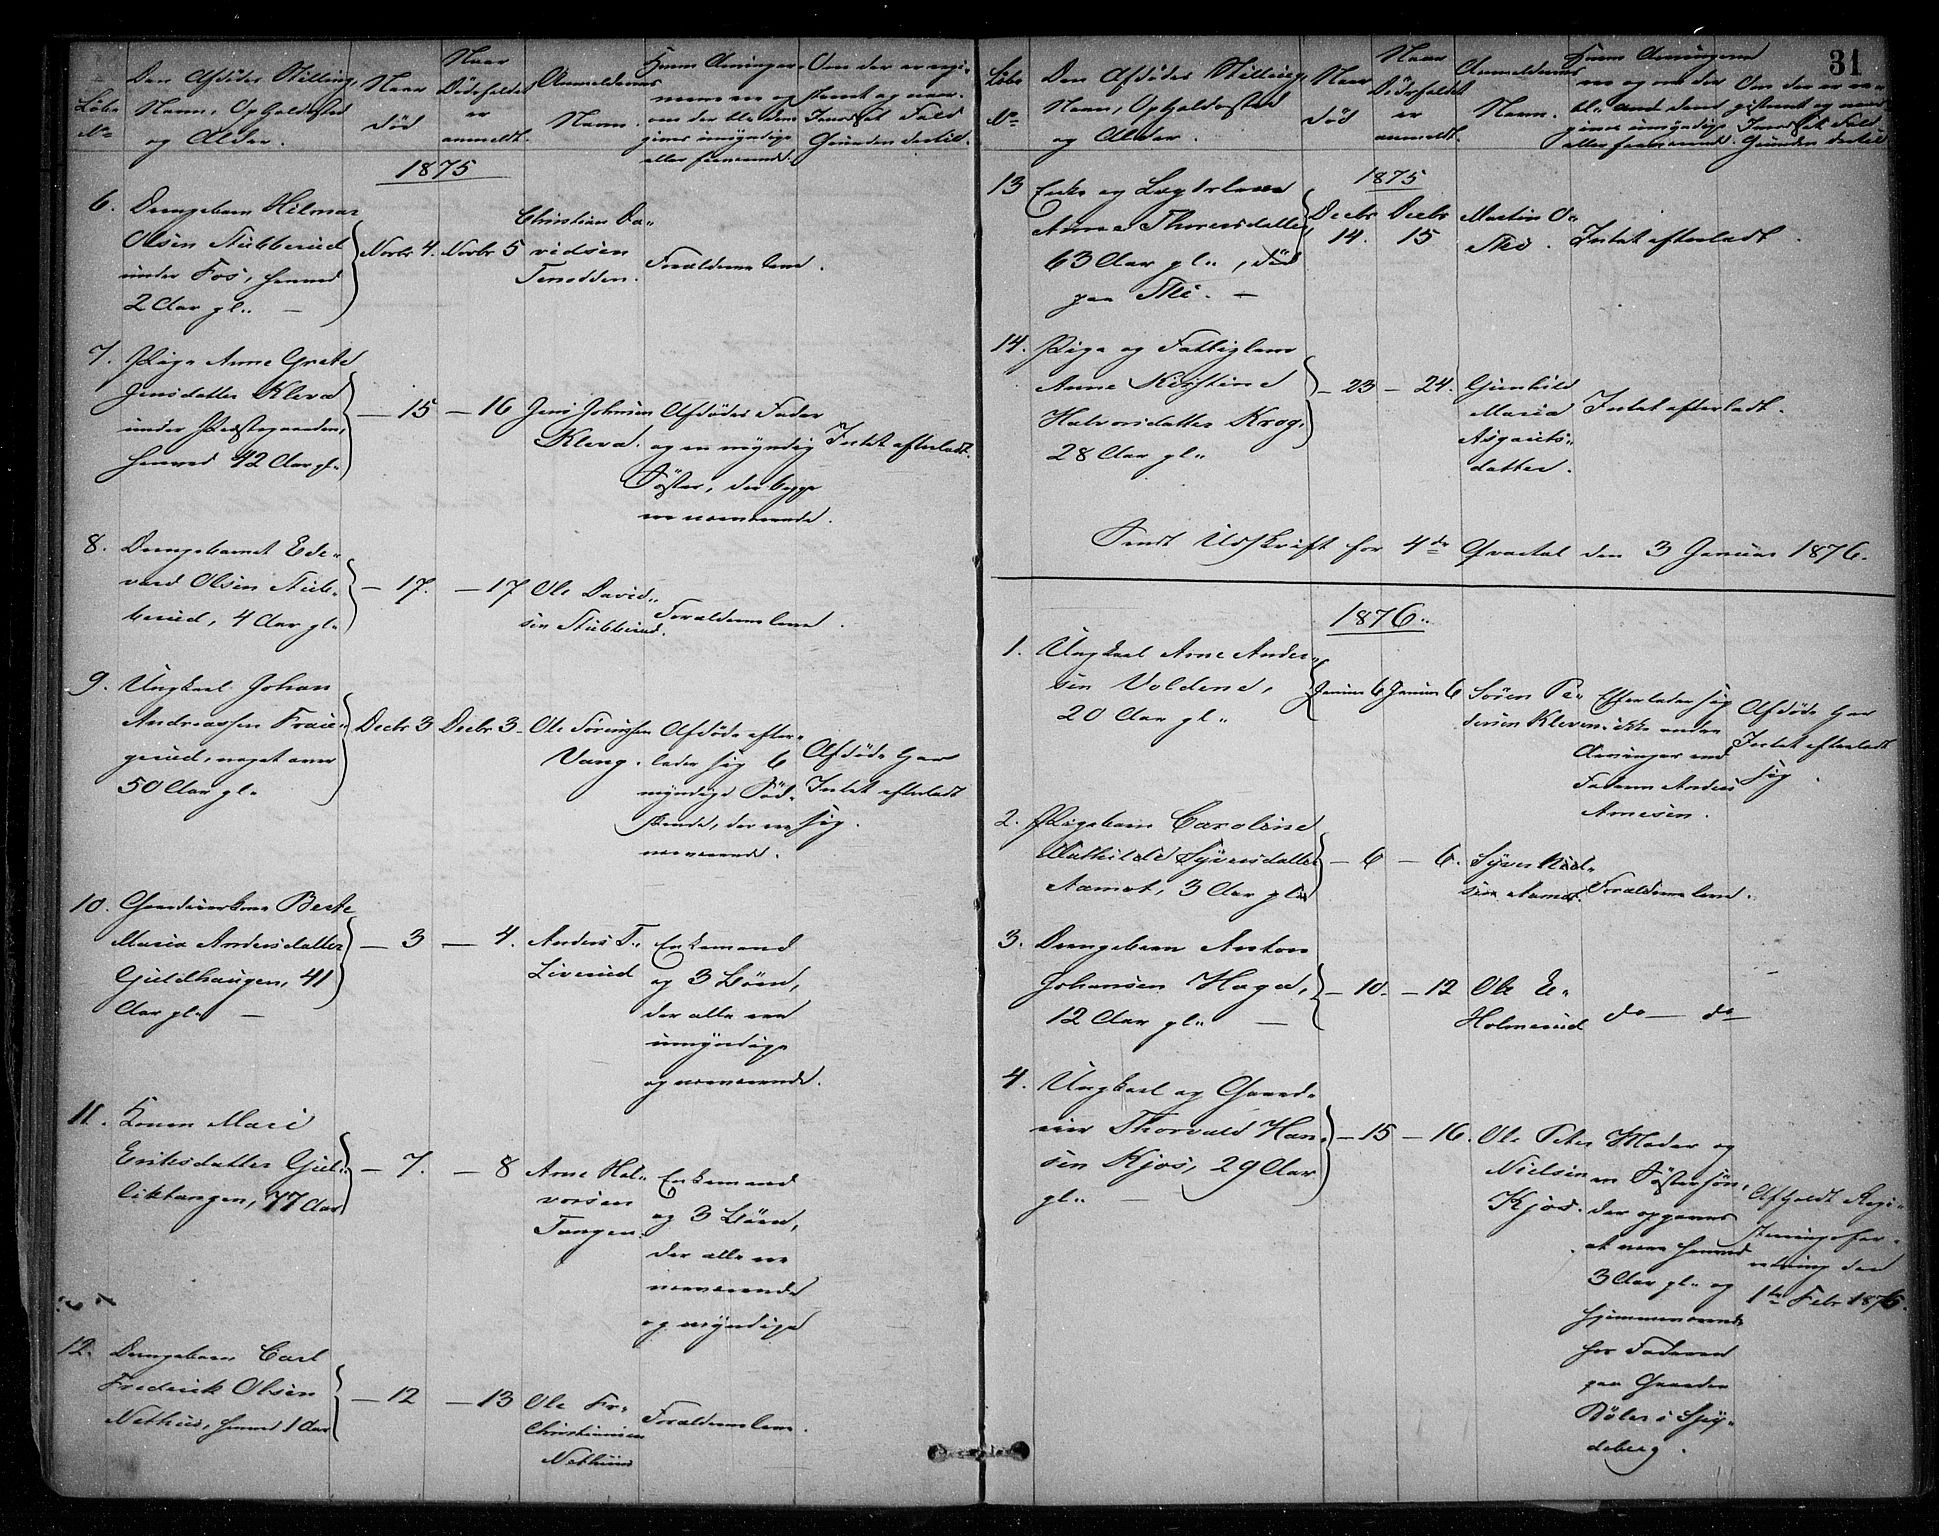 31
Løbe
No
Den Afdødes Stilling,
Navn, Opholdssted
og Alder.
Naar
død
Naar
Dødsfaldet
er
anmeldt.
Anmelderens
Navn.
Hvem Arvingerne
ere og
om der blandt dem
gives umyndige
eller fraværende.
Om der er regi-
streret og navn-
Grunden dertil.
1875
6. Drengebarn Hilmar
Olsen Stubberud
under Fos, henved
2 Aar gl.
Novbr 4.
Novbr 5
Christian Da-
vidsen
Tenodden.
Forældrene leve.
7. Pige Anne Grete
Jensdatter Kleva
under Præstegaarden,
henved 42 Aar gl.
— 15
— 16
Jens Johnsen
Kleva.
Afdødes Fader
og en myndig
Søster, der begge
ere nærværende.
Intet efterladt.
8. Drengebarnet Ed-
vard Olsen Stub-
berud, 4 Aar gl.
— 17.
— 17
Ole David-
sen Stubberud.
Forældrene leve.
9. Ungkarl Johan
Andreassen
noget over
50 Aar gl.
Decbr 3
Decbr 3
Ole Sørensen
Vang.
Afdøde efter-
lader sig 6
myndige Sød-
skende, der ere
nærværende.
Afdøde har
Intet efterladt
sig.
10. Gaardmandskone Berte
Maria Andersdatter
Guldhaugen, 41
Aar gl.
— 3
— 4.
Anders T.
Liverud
Enkemand
og 3 Børn,
der alle ere
umyndige
og nærværende.
11. Konen Mari
Eriksdatter Gul-
liktangen, 77 Aar
— 7.
— 8
Arne Hal-
vorsen
Tangen.
Enkemand
og 3 Børn,
der alle ere
nærværende
og myndige
12. Drengebarn Carl
Fredrick Olsen
Nethus, henved 1 Aar
— 12
— 13
Ole Fr.
Christiansen
Nethuus
Forældrene leve.
Løbe
No
Den Afdødes Stilling,
Navn, Opholdssted
og Alder.
Naar
død
Naar
Dødsfaldet
er
anmeldt.
Anmelderens
Navn.
Hvem Arvingerne
ere og om der
blandt dem
gives umyndige
eller fraværende.
Om der er re-
gistreret og navn-
Grunden dertil
1875
13 Enke og Lægdslem
Anne Thoresdatter,
63 Aar gl., død
paa Ski. —
Decbr
14.
Decbr
15
Martin O.
Ski.
Intet efterladt.
14. Pige og Fattiglem
Anne Kirstine
Halvorsdatter Krog.
28 Aar gl.
— 23
— 24.
Gunhild
Maria
Asgauts-
datter.
Intet efterladt.
Sendt Udskrift for 4de Qvartal den 3 Januar 1876.
1876.
1. Ungkarl Arne Ander-
sen Voldene,
20 Aar gl.
Januar 6
Januar 6
Søren Pe-
dersen Kleven
Efterlader sig
ikke andre
Arvinger end
Faderen Anders
Arnesen.
Afdøde har
Intet efterladt
sig.
2. Pigebarn Caroline
Mathilde Syversdatter
Aamot, 3 Aar gl.
— 6
— 6.
Syver Niel-
sen Aamot.
Forældrene leve.
3. Drengebarn Anton
Johansen Haga,
12 Aar gl. —
— 10.
— 12
Ole E.
Holmerud
do — do
4. Ungkarl og Gaard-
eier Thorvald Han-
sen Kjos, 29 Aar
gl. —
— 15
— 16.
Ole Peter
Nielsen
Kjos.
Moder og
en Søstersøn,
der opgaves
at være henved
3 Aar gl. og
hjemmeværende
hos Faderen
paa Gaarden
Bøler i Spy-
deberg.
Afholdt Regi-
streringsfor-
retning den
1ste Febr 1876.